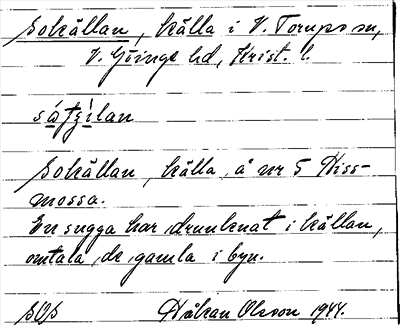 Sokällan, källa i V. Torups sn,
V. Göinge hd, Krist. l.
Sokällan, källa, å nr 5 Hiss-
mossa.
En sugga har drunknat i källan,
omtala de gamla i byn.
Håkan Olsson 1944.